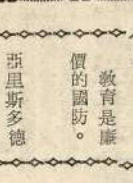 教育是廉
價的國防。
亞里斯多德